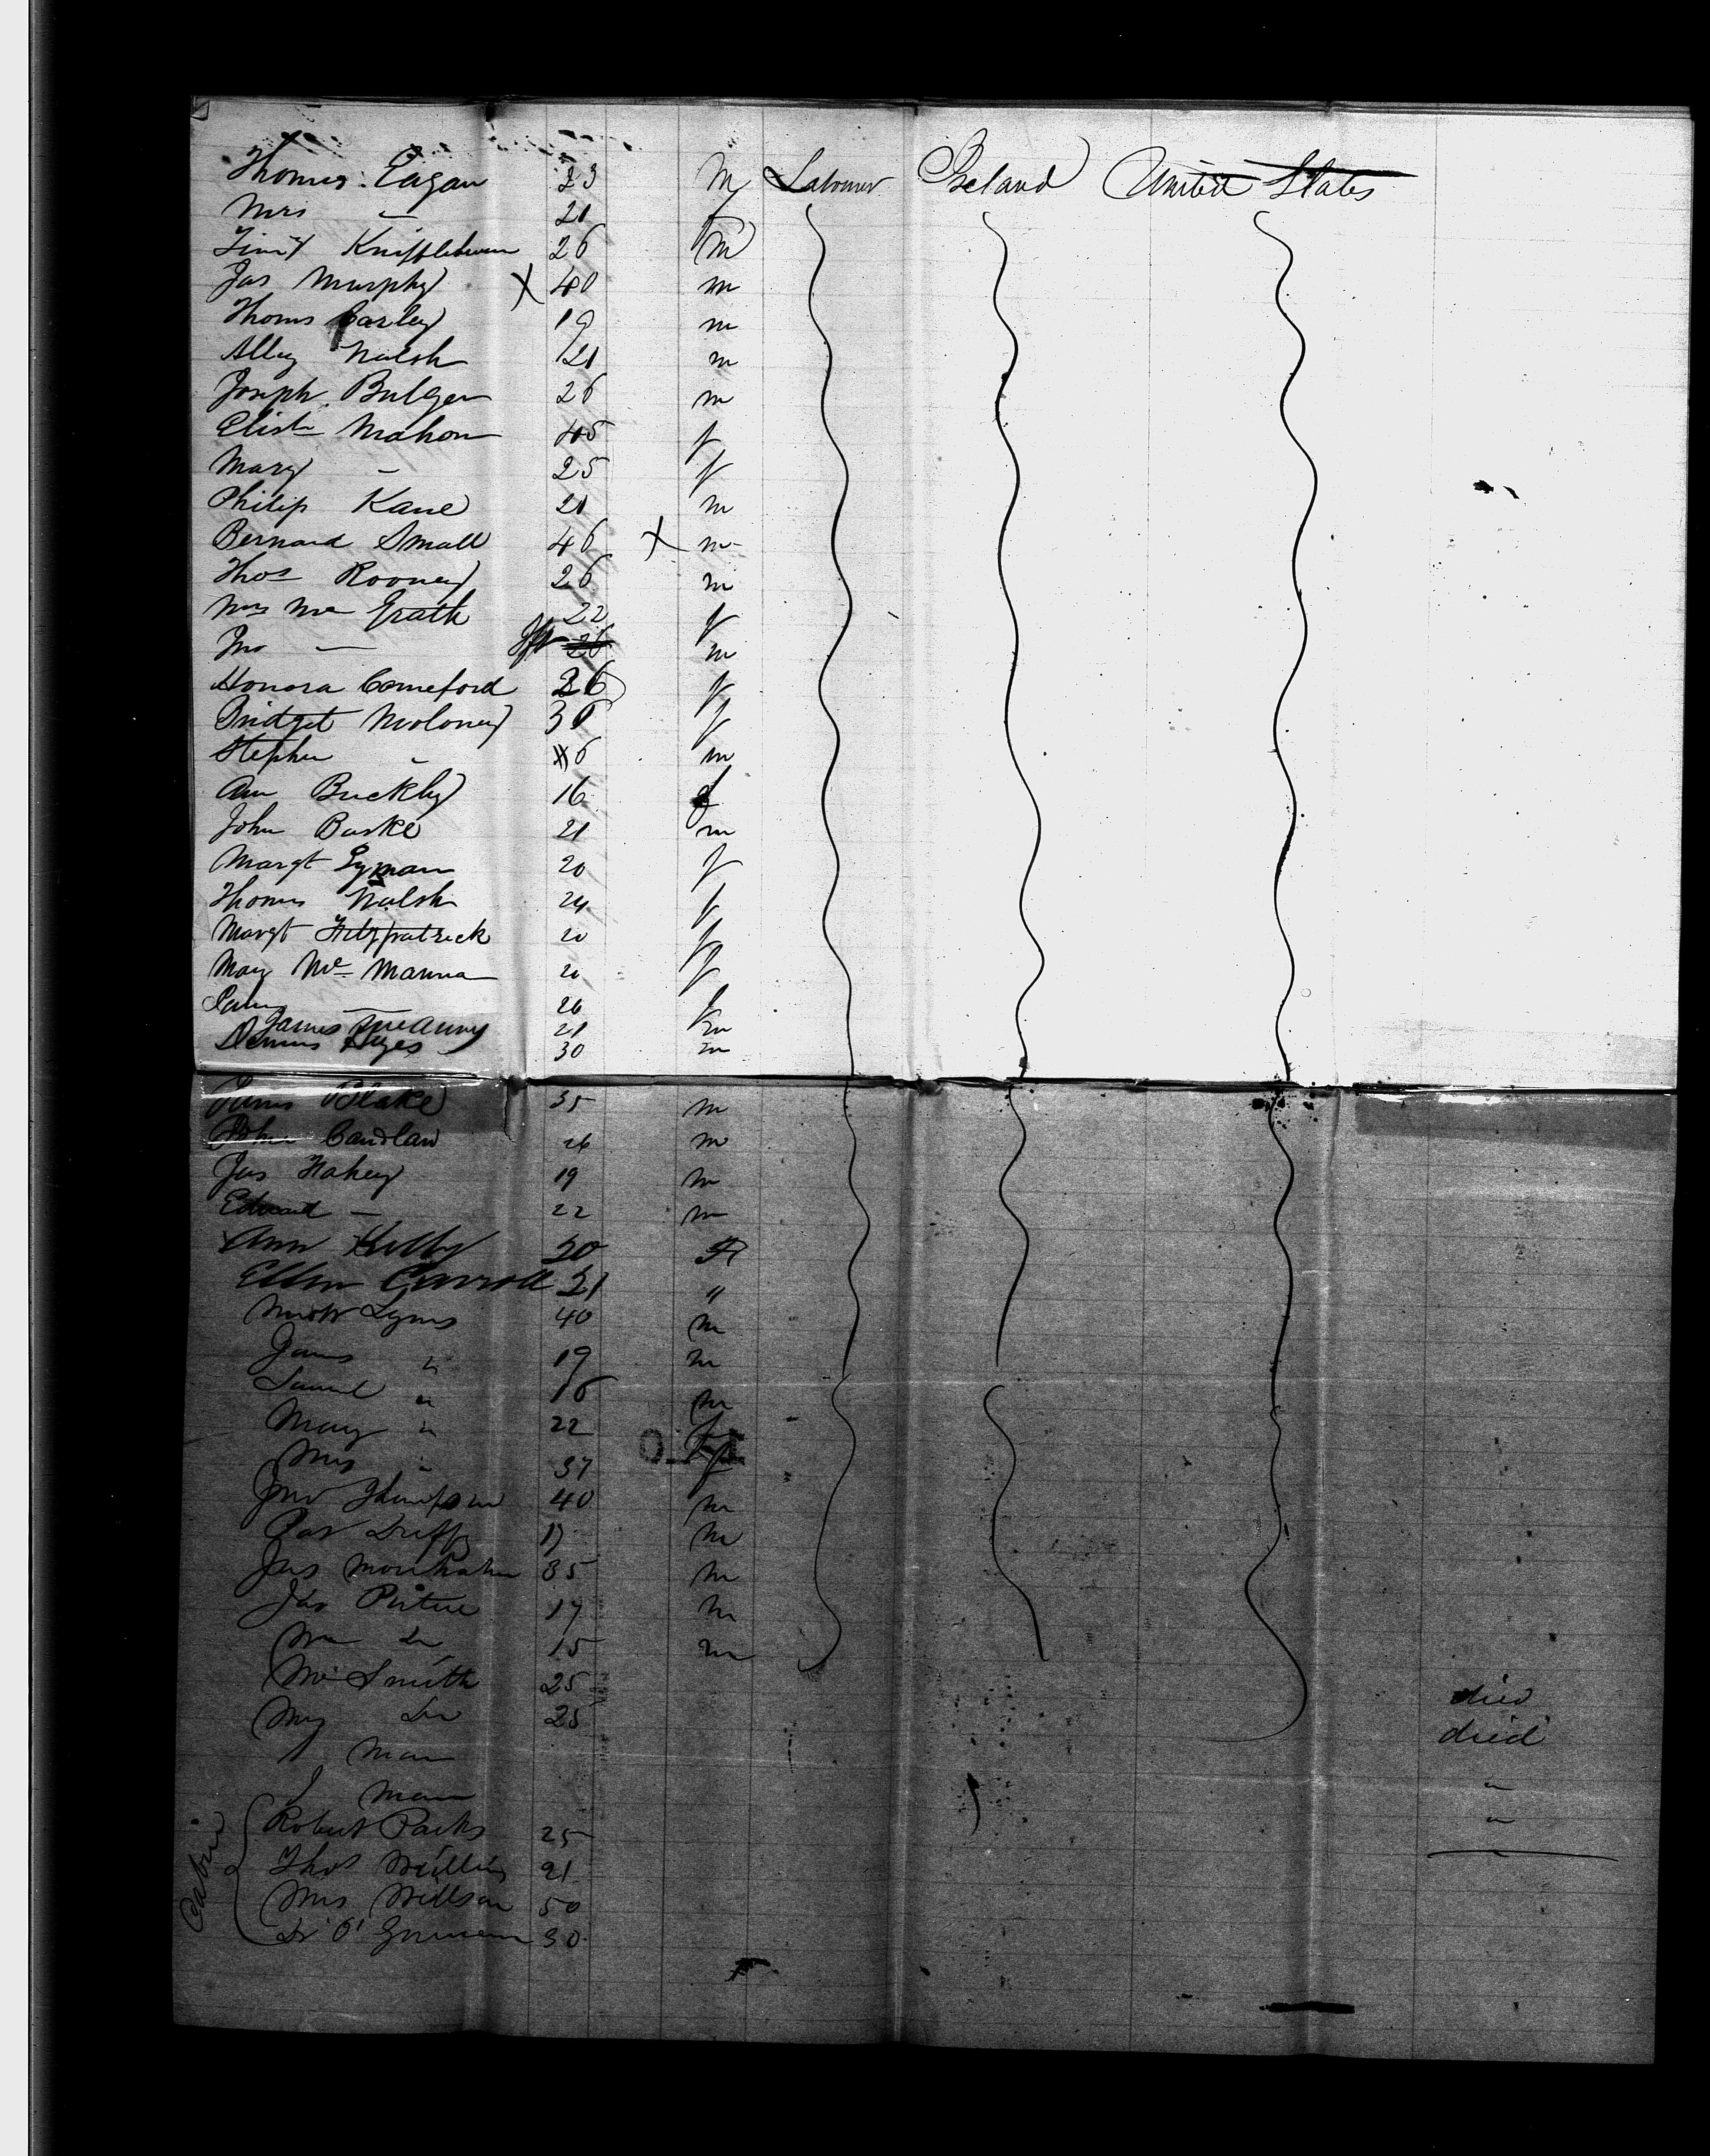 Thomas Eagan 23 M Labourer Ireland United States
Mrs — 21 f
Timy 26 m
Jas Murphy X 40 m
Thoms Carley 19 m
Alley Walsh 21 m
Joseph Bulger 26 m
Elisth Mahon 45 f
Mary — 25 f
Philip Kane 21 m
Bernard Small 46 X m
Thos Rooney 26 m
Mrs Mc Grath 22 f
Jno — m
Honora Comeford 26 f
Bridget Moloney 30 f
Stephen — 6 m
Ann Buckley 16 f
John Burke 21 m
Margt Lyman 20 f
Thomas Walsh 24 f
Margt Fitzpatrick 20 f
Mary Mc Manna 20 f
— 20 f
James 21 m
Dennis Hayes 30 m
Blake 35 m
John Candlan 26 m
Jas Fahey 19 m
Edward — 22 m
Ann Kelly 20 F
Ellen Carroll 21 "
Lyns 40 m
James " 19 m
Samuel " 16 m
Mary " 22 f
Mrs " 37 f
Jno Thompson 40 m
Pat Duffy 17 m
Jas Monahan 35 m
Jas 19 m
Wm Do 15 m
Mr Smith 25 died
Do 25 died
1 Man "
1 Man "
Cabin
Robert Parks 25
Thos 21
Mrs Willson 50
Dr O' Gorman 30